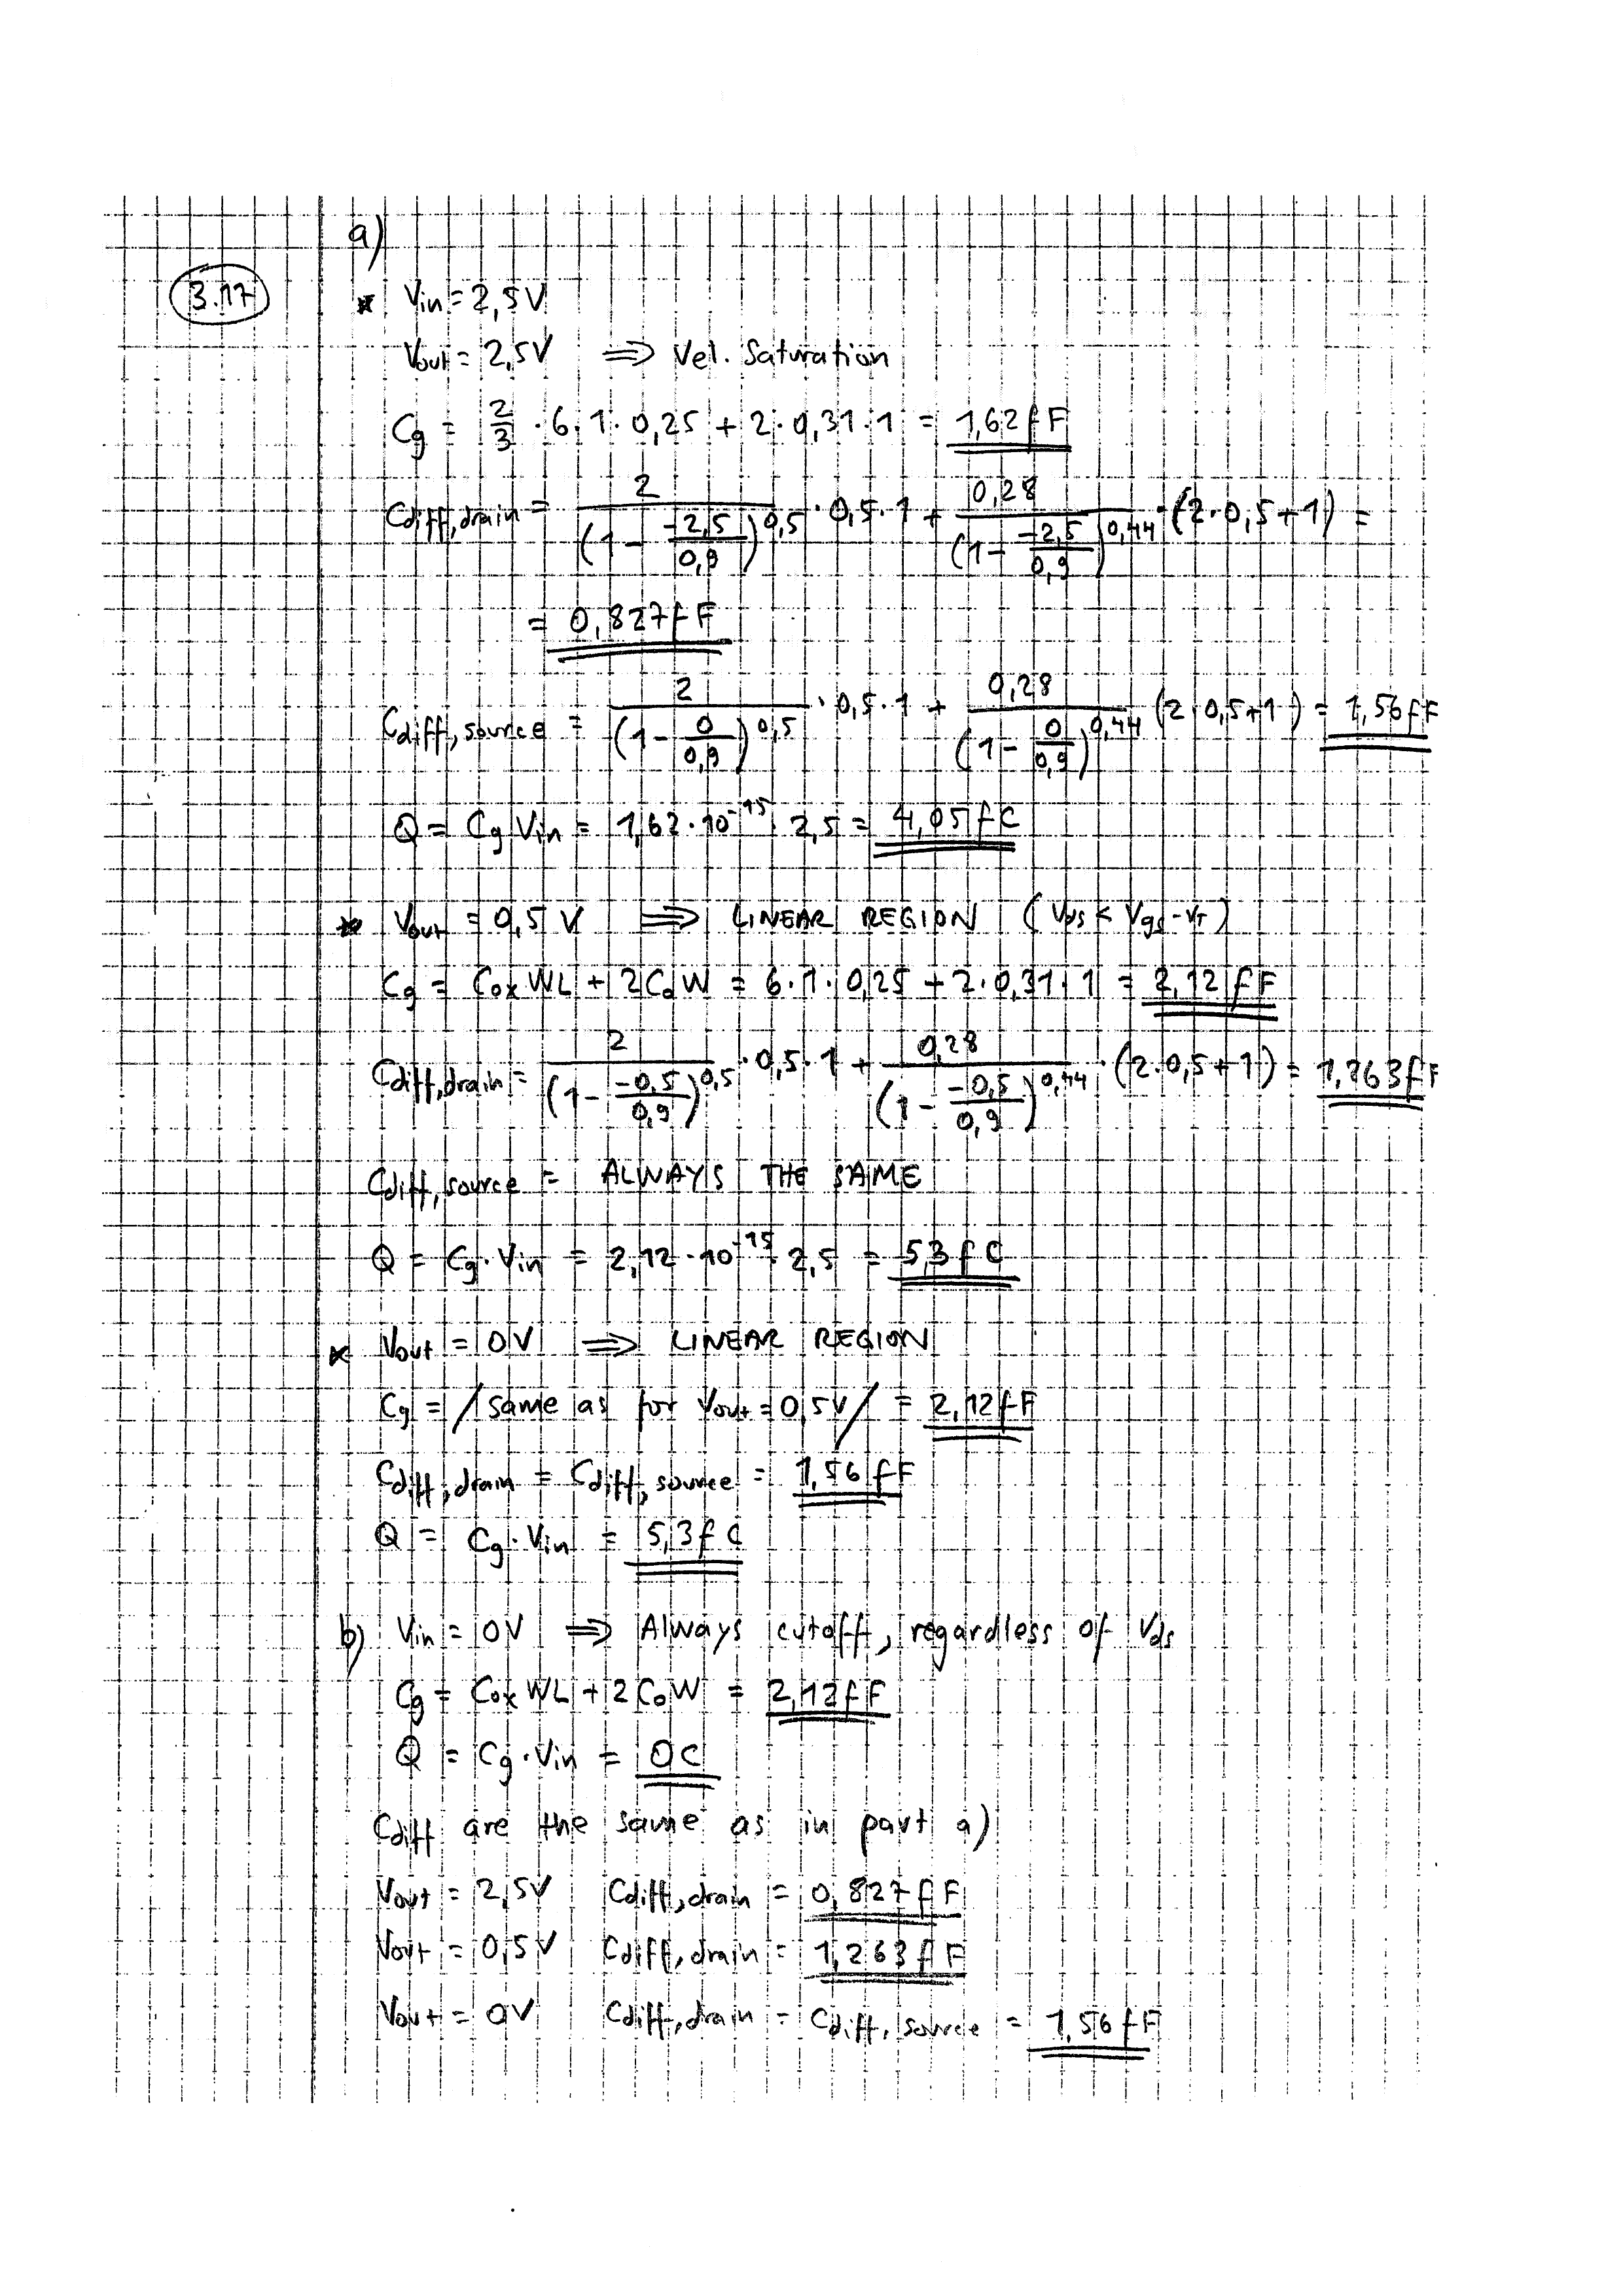 a)
3.17
* Vin = 2,5V
Vout = 2,5V ⇒ Vel. Saturation
Cg = 2/3 · 6 · 1 · 0,25 + 2 · 0,31 · 1 = 1,62 fF
Cdiff,drain = 2/(1 - -2,5/0,9)^0,5 · 0,5 · 1 + 0,28/(1 - -2,5/0,9)^0,44 · (2·0,5+1) =
= 0,827 fF
Cdiff,source = 2/(1 - 0/0,9)^0,5 · 0,5 · 1 + 0,28/(1 - 0/0,9)^0,44 (2·0,5+1) = 1,56 fF
Q = Cg Vin = 1,62 · 10^-15 · 2,5 = 4,05 fC
* Vout = 0,5 V ⇒ LINEAR REGION (Vds < Vgs - VT)
Cg = Cox WL + 2CoW = 6 · 1 · 0,25 + 2 · 0,31 · 1 = 2,12 fF
Cdiff,drain = 2/(1 - -0,5/0,9)^0,5 · 0,5 · 1 + 0,28/(1 - -0,5/0,9)^0,44 · (2·0,5+1) = 1,263 fF
Cdiff,source = ALWAYS THE SAME
Q = Cg · Vin = 2,12 · 10^-15 · 2,5 = 5,3 fC
* Vout = 0V ⇒ LINEAR REGION
Cg = / same as for Vout = 0,5V / = 2,12 fF
Cdiff,drain = Cdiff,source = 1,56 fF
Q = Cg · Vin = 5,3 fC
b) Vin = 0V ⇒ Always cutoff, regardless of Vds
Cg = Cox WL + 2 CoW = 2,12 fF
Q = Cg · Vin = 0C
Cdiff are the same as in part a)
Vout = 2,5V Cdiff,drain = 0,827 fF
Vout = 0,5V Cdiff,drain = 1,263 fF
Vout = 0V Cdiff,drain = Cdiff,source = 1,56 fF